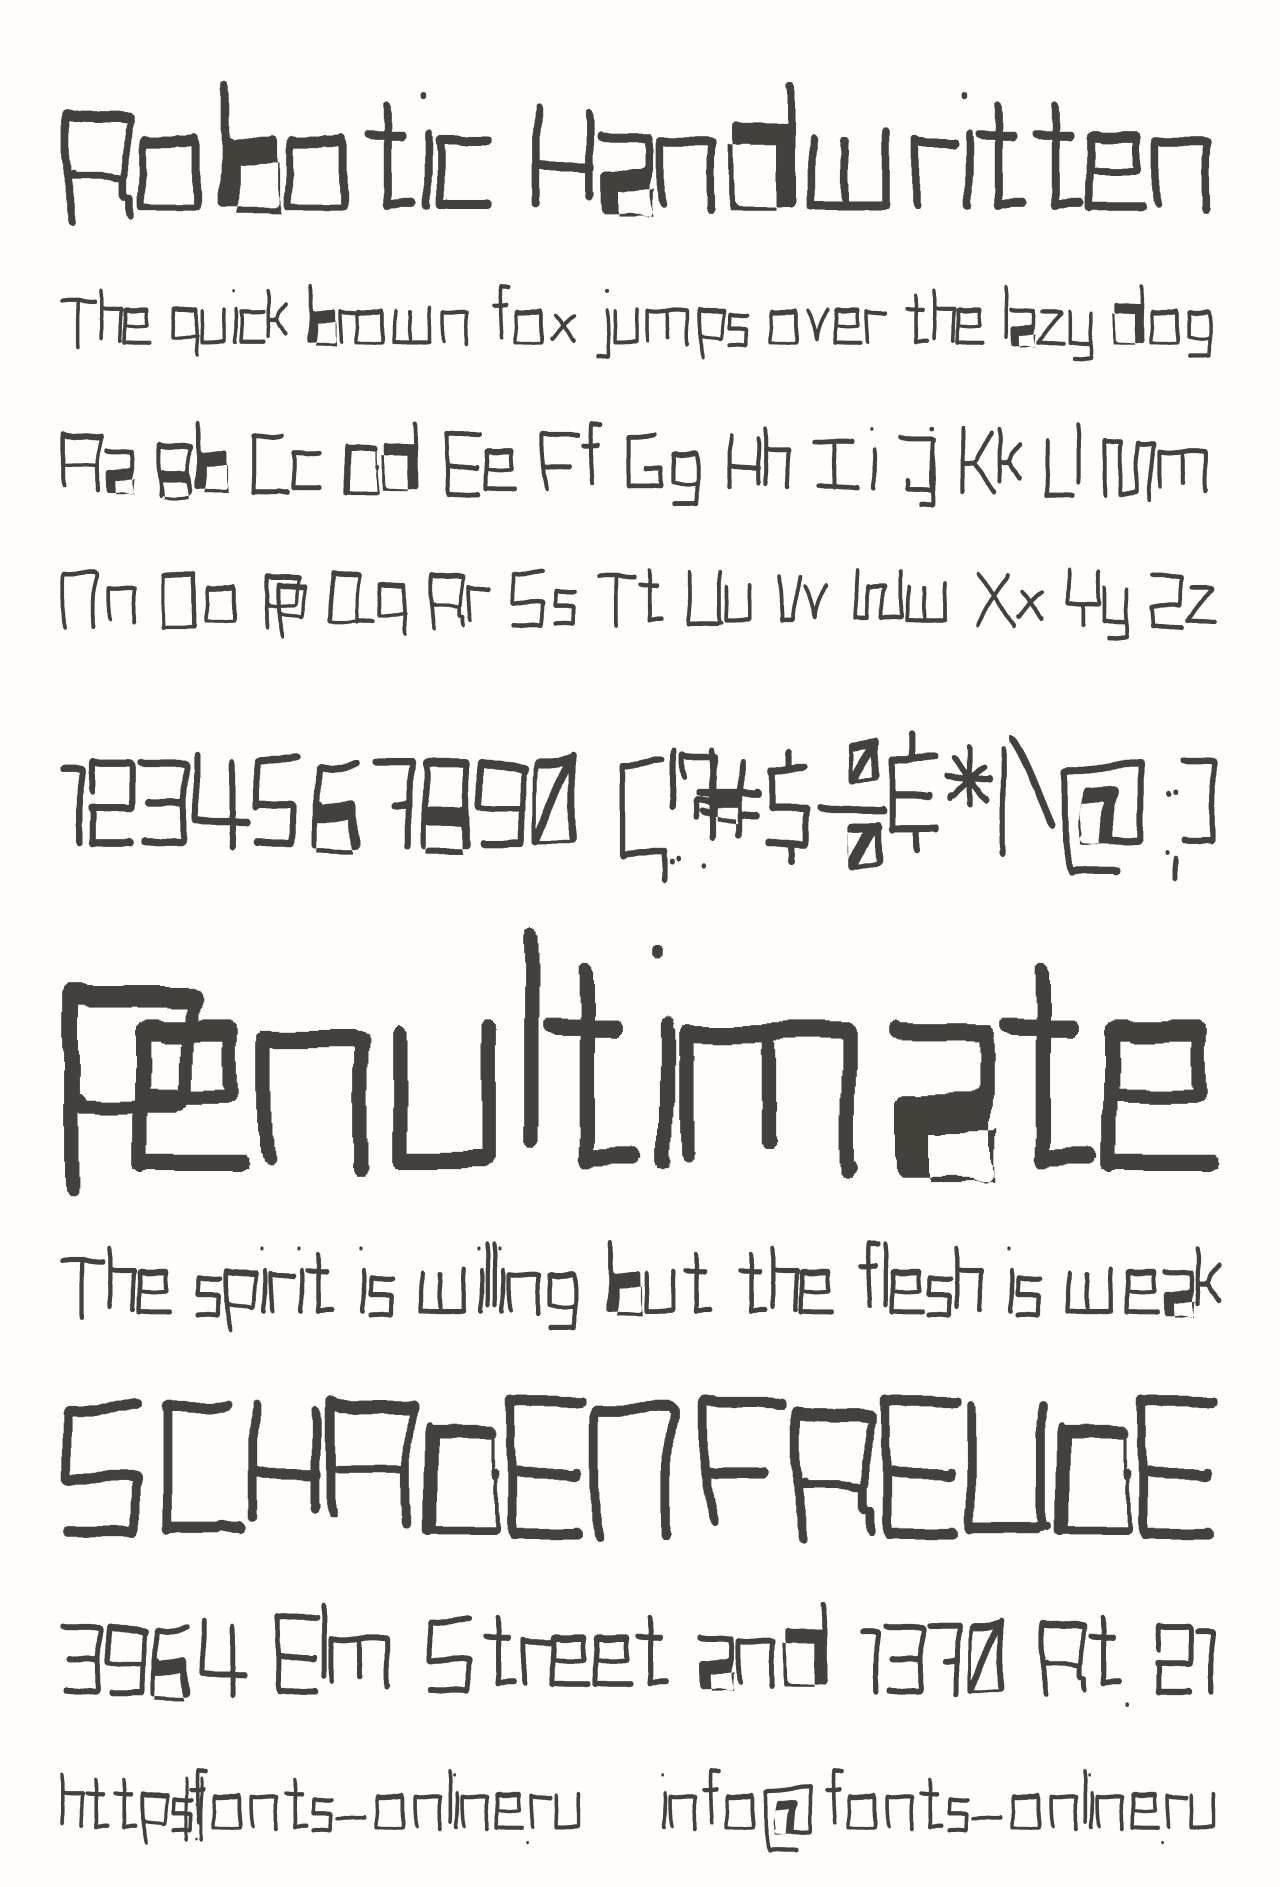 Robotic Handwritten
The quick brown fox jumps over the lazy dog
Aa Bb Cc Dd Ee Ff Gg Hh Ii Jj Kk Ll Mm
Nn Oo Pp Qq Rr Ss Tt Uu Vv Ww Xx Yy Zz
1234567890 [,:"?.#$%£*|\@:;]
Penultimate
The spirit is willing but the flesh is weak
SCHADENFREUDE
3964 Elm Street and 1370 Rt. 21
https://fonts-online.ru info@fonts-online.ru